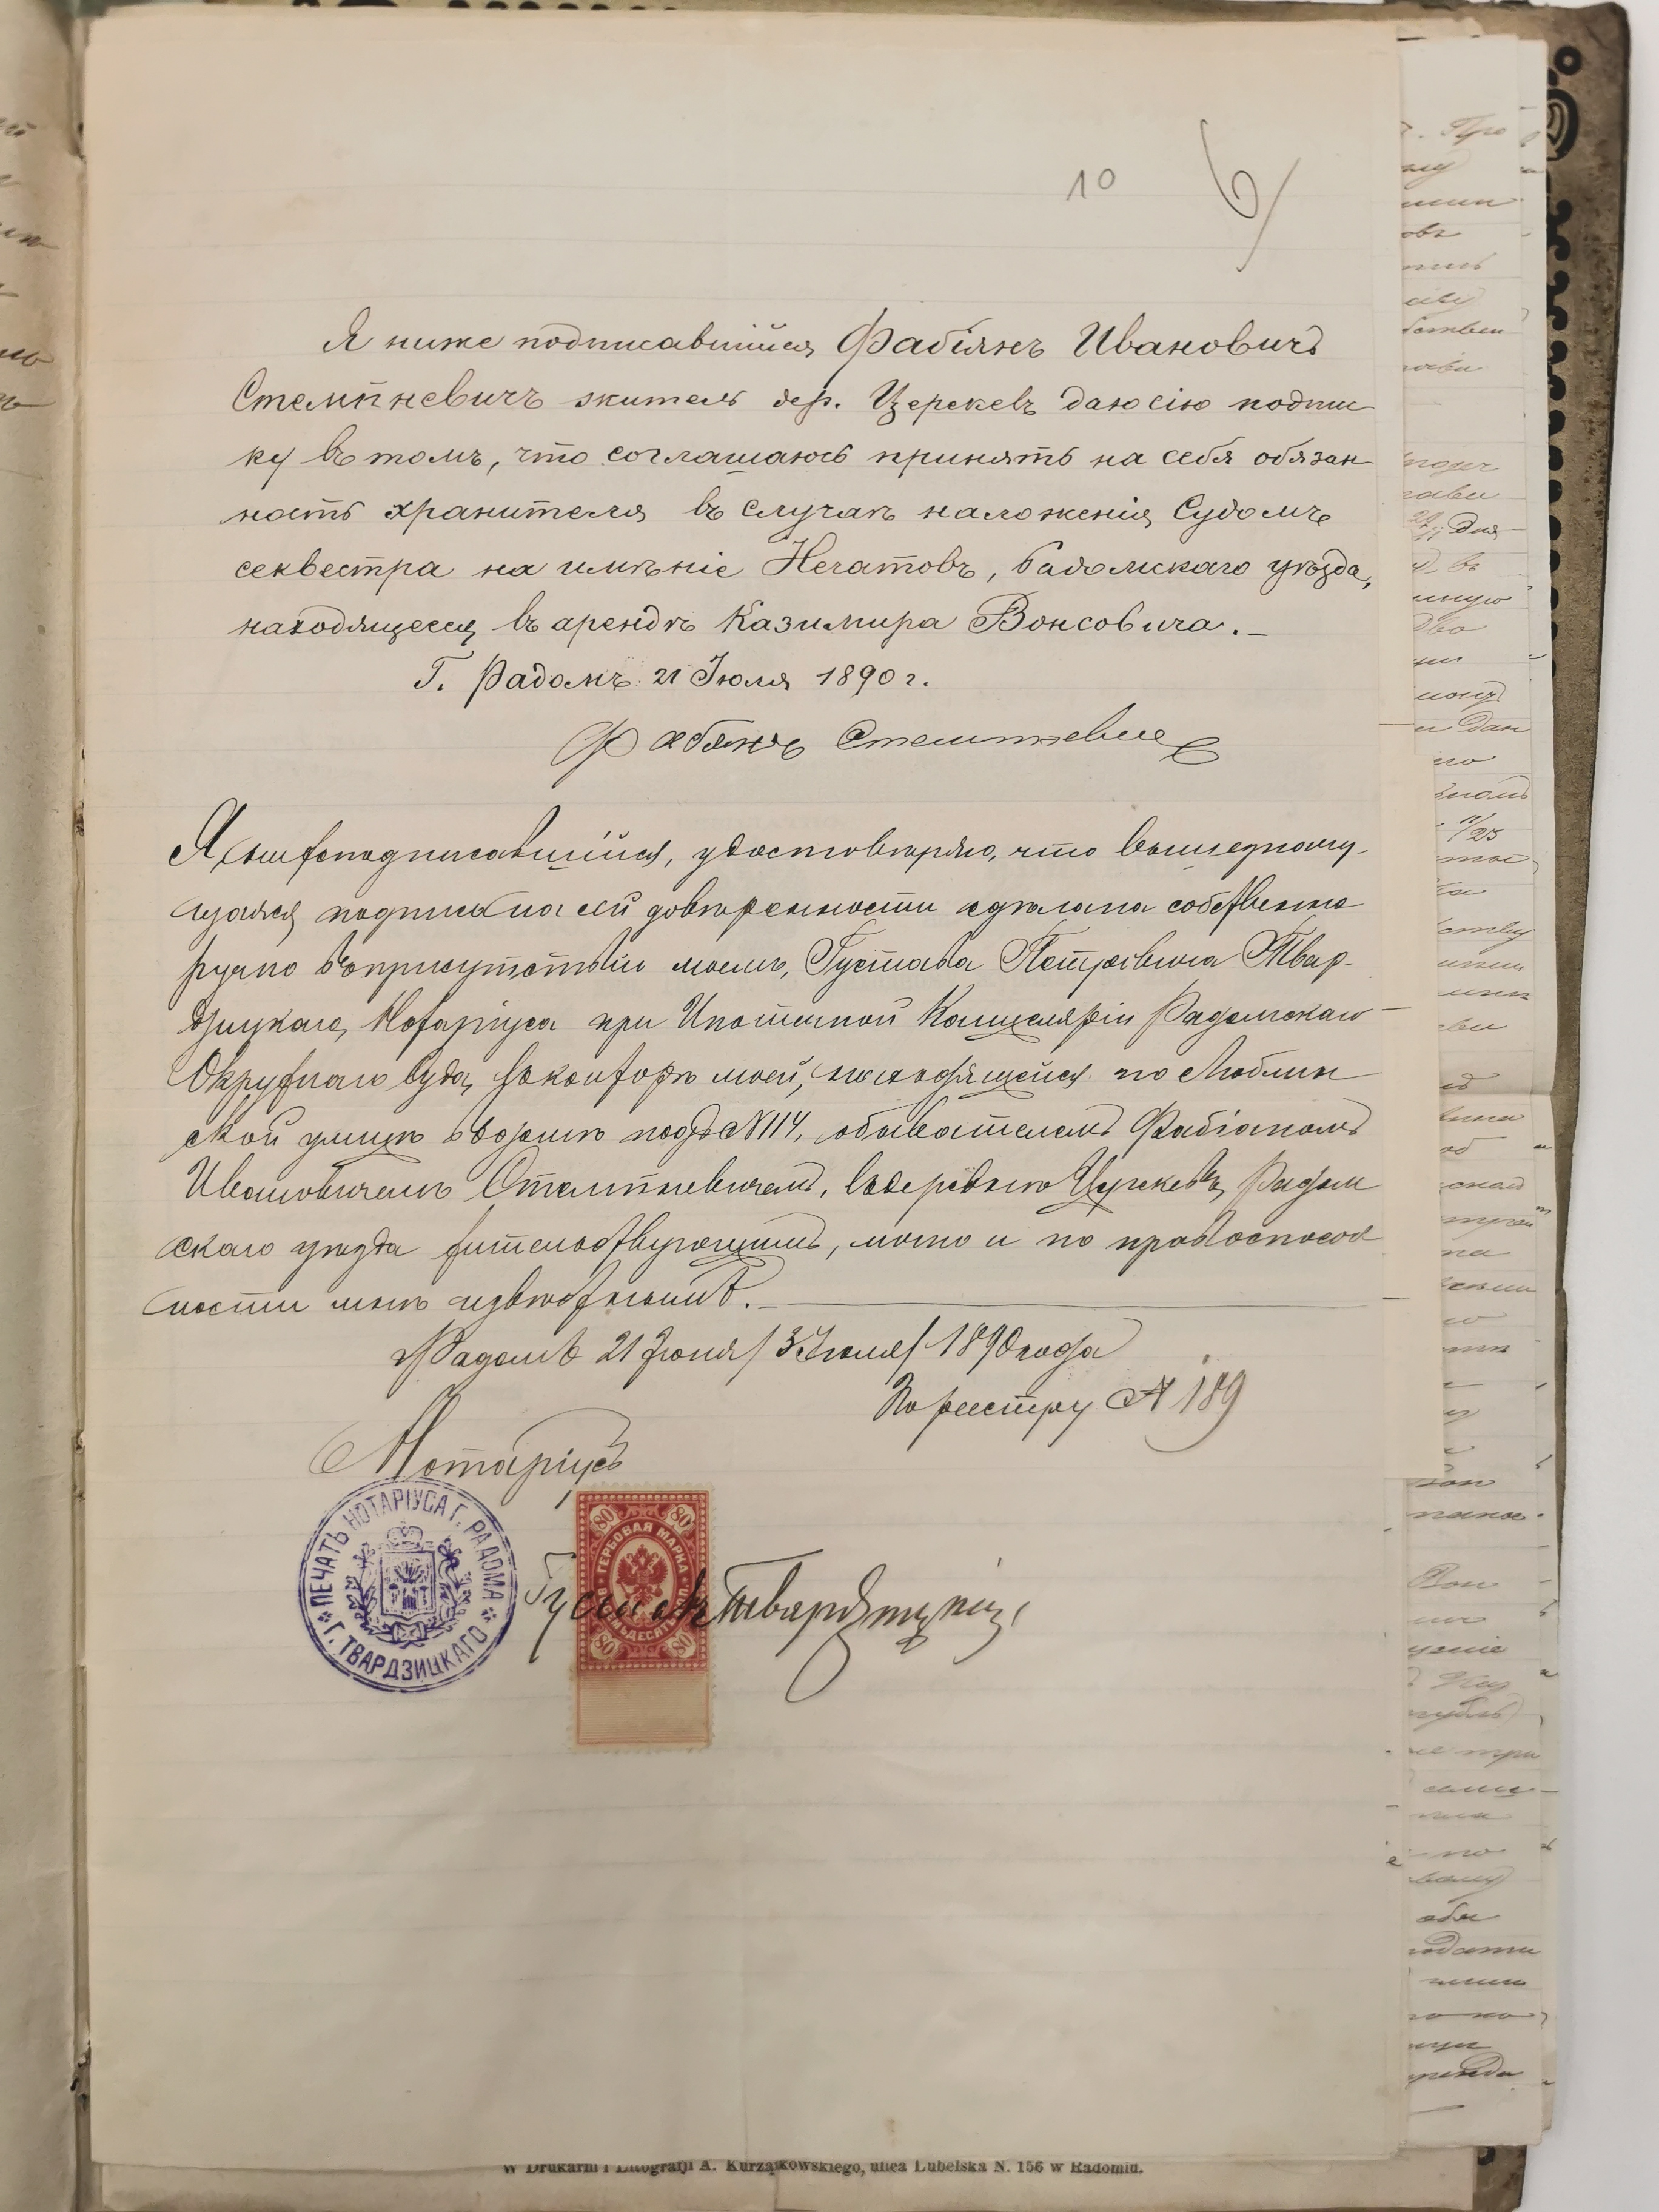 10 6
Я ниже подписавшійся Фабіянъ Ивановичъ
Стемпневичъ житель дер. Церекевъ даю сію подпис
ку въ томъ, что соглашаюсь принять на себя обязан
ность хранителя въ случаѣ наложенія Судомъ
секвестра на имѣніе Нечатовъ, Радомскаго уѣзда,
находящееся въ арендѣ Казимира Вонсовича.
Г. Радомъ 21 Іюля 1890 г.
Фабянъ Стемпневичъ
Я, нижеподписавшійся, удостовѣряю, что вышеозначу-
щаяся подпись на сей довѣренности сдѣлана собственно
ручно въ присутствіи моемъ, Густава Петровича Твар-
дзицкаго, Нотаріуса при Ипотечной Канцеляріи Радомскаго
Окружнаго Суда, въ конторѣ моей, находящейся по Люблин
ской улицѣ въ домѣ подъ № 114, обывателемъ Фабіаномъ
Ивановичемъ Стемпневичемъ, въ деревнѣ Церекевъ, Радом
скаго уѣзда жительствующимъ, лично и по правоспособ
ности мнѣ извѣстнымъ.
Радомъ 21 Іюня / 3 Іюля / 1890 года
По реестру № 189
Нотаріусъ
ПЕЧАТЬ НОТАРІУСА Г. РАДОМА
Г. ТВАРДЗИЦКАГО
80 80
ГЕРБОВАЯ МАРКА
80 80
Густавъ Твардзицкій
W Drukarni i Litografji A. Kurzątkowskiego, ulica Lubelska N. 156 w Radomiu.